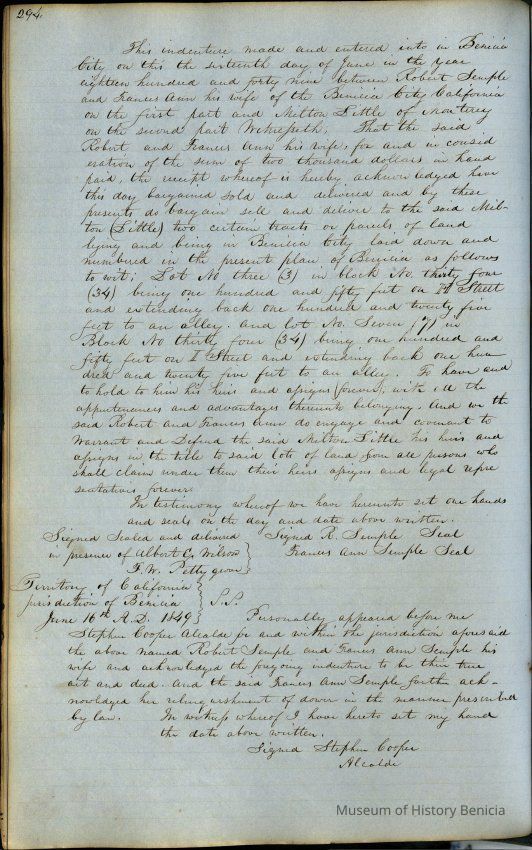 294
This indenture made and entered into in Benicia
City on this the sixteenth day of June in the year
eighteen hundred and forty nine between Robert Semple
and Frances Ann his wife of the Benicia City California
on the first part and Milton Little of Monterey
on the second part Witnesseth, That the said
Robert and Frances Ann his wife, for and in consid
eration of the sum of two thousand dollars in hand
paid, the receipt whereof is hereby acknowledged have
this day bargained sold and delivered and by these
presents do bargain sell and deliver to the said Mil-
ton (Little) two certain tracts or parcels of land
lying and being in Benicia City laid down and
numbered in the present plan of Benicia as follows
to wit; Lot No three (3) in block No. thirty four
(34) being one hundred and fifty feet on Street
and extending back one hundred and twenty five
feet to an alley. and lot No. Seven (7) in
Block No thirty four (34) being one hundred and
fifty feet on I Street and extending back one hun
dred and twenty five feet to an alley. To have and
to hold to him his heirs and assigns (forever), with all the
appurtenances and advantages thereunto belonging. And we the
said Robert and Frances Ann do engage and covenant to
Warrant and Defend the said Milton Little his heirs and
assigns in the title to said lots of land from all persons who
shall claim under them their heirs assigns and legal repre
sentatives forever.
In testimony whereof we have hereunto set our hands
and seals on the day and date above written.
Signed Sealed and delivered Signed R. Semple Seal
in presence of Albert G. Wilson Frances Ann Semple Seal
F. W. Pettygrove
Territory of California
jurisdiction of Benicia } S.S.
June 16th A.D. 1849 Personally appeared before me
Stephen Cooper Alcalde for and within the jurisdiction aforesaid
the above named Robert Semple and Frances Ann Semple his
wife and acknowledged the foregoing indenture to be their true
act and deed. And the said Frances Ann Semple further ack-
nowledged her relinquishment of dower in the manner prescribed
by law. In witness whereof I have hereto set my hand
the date above written.
Signed Stephen Cooper
Alcalde
Museum of History Benicia